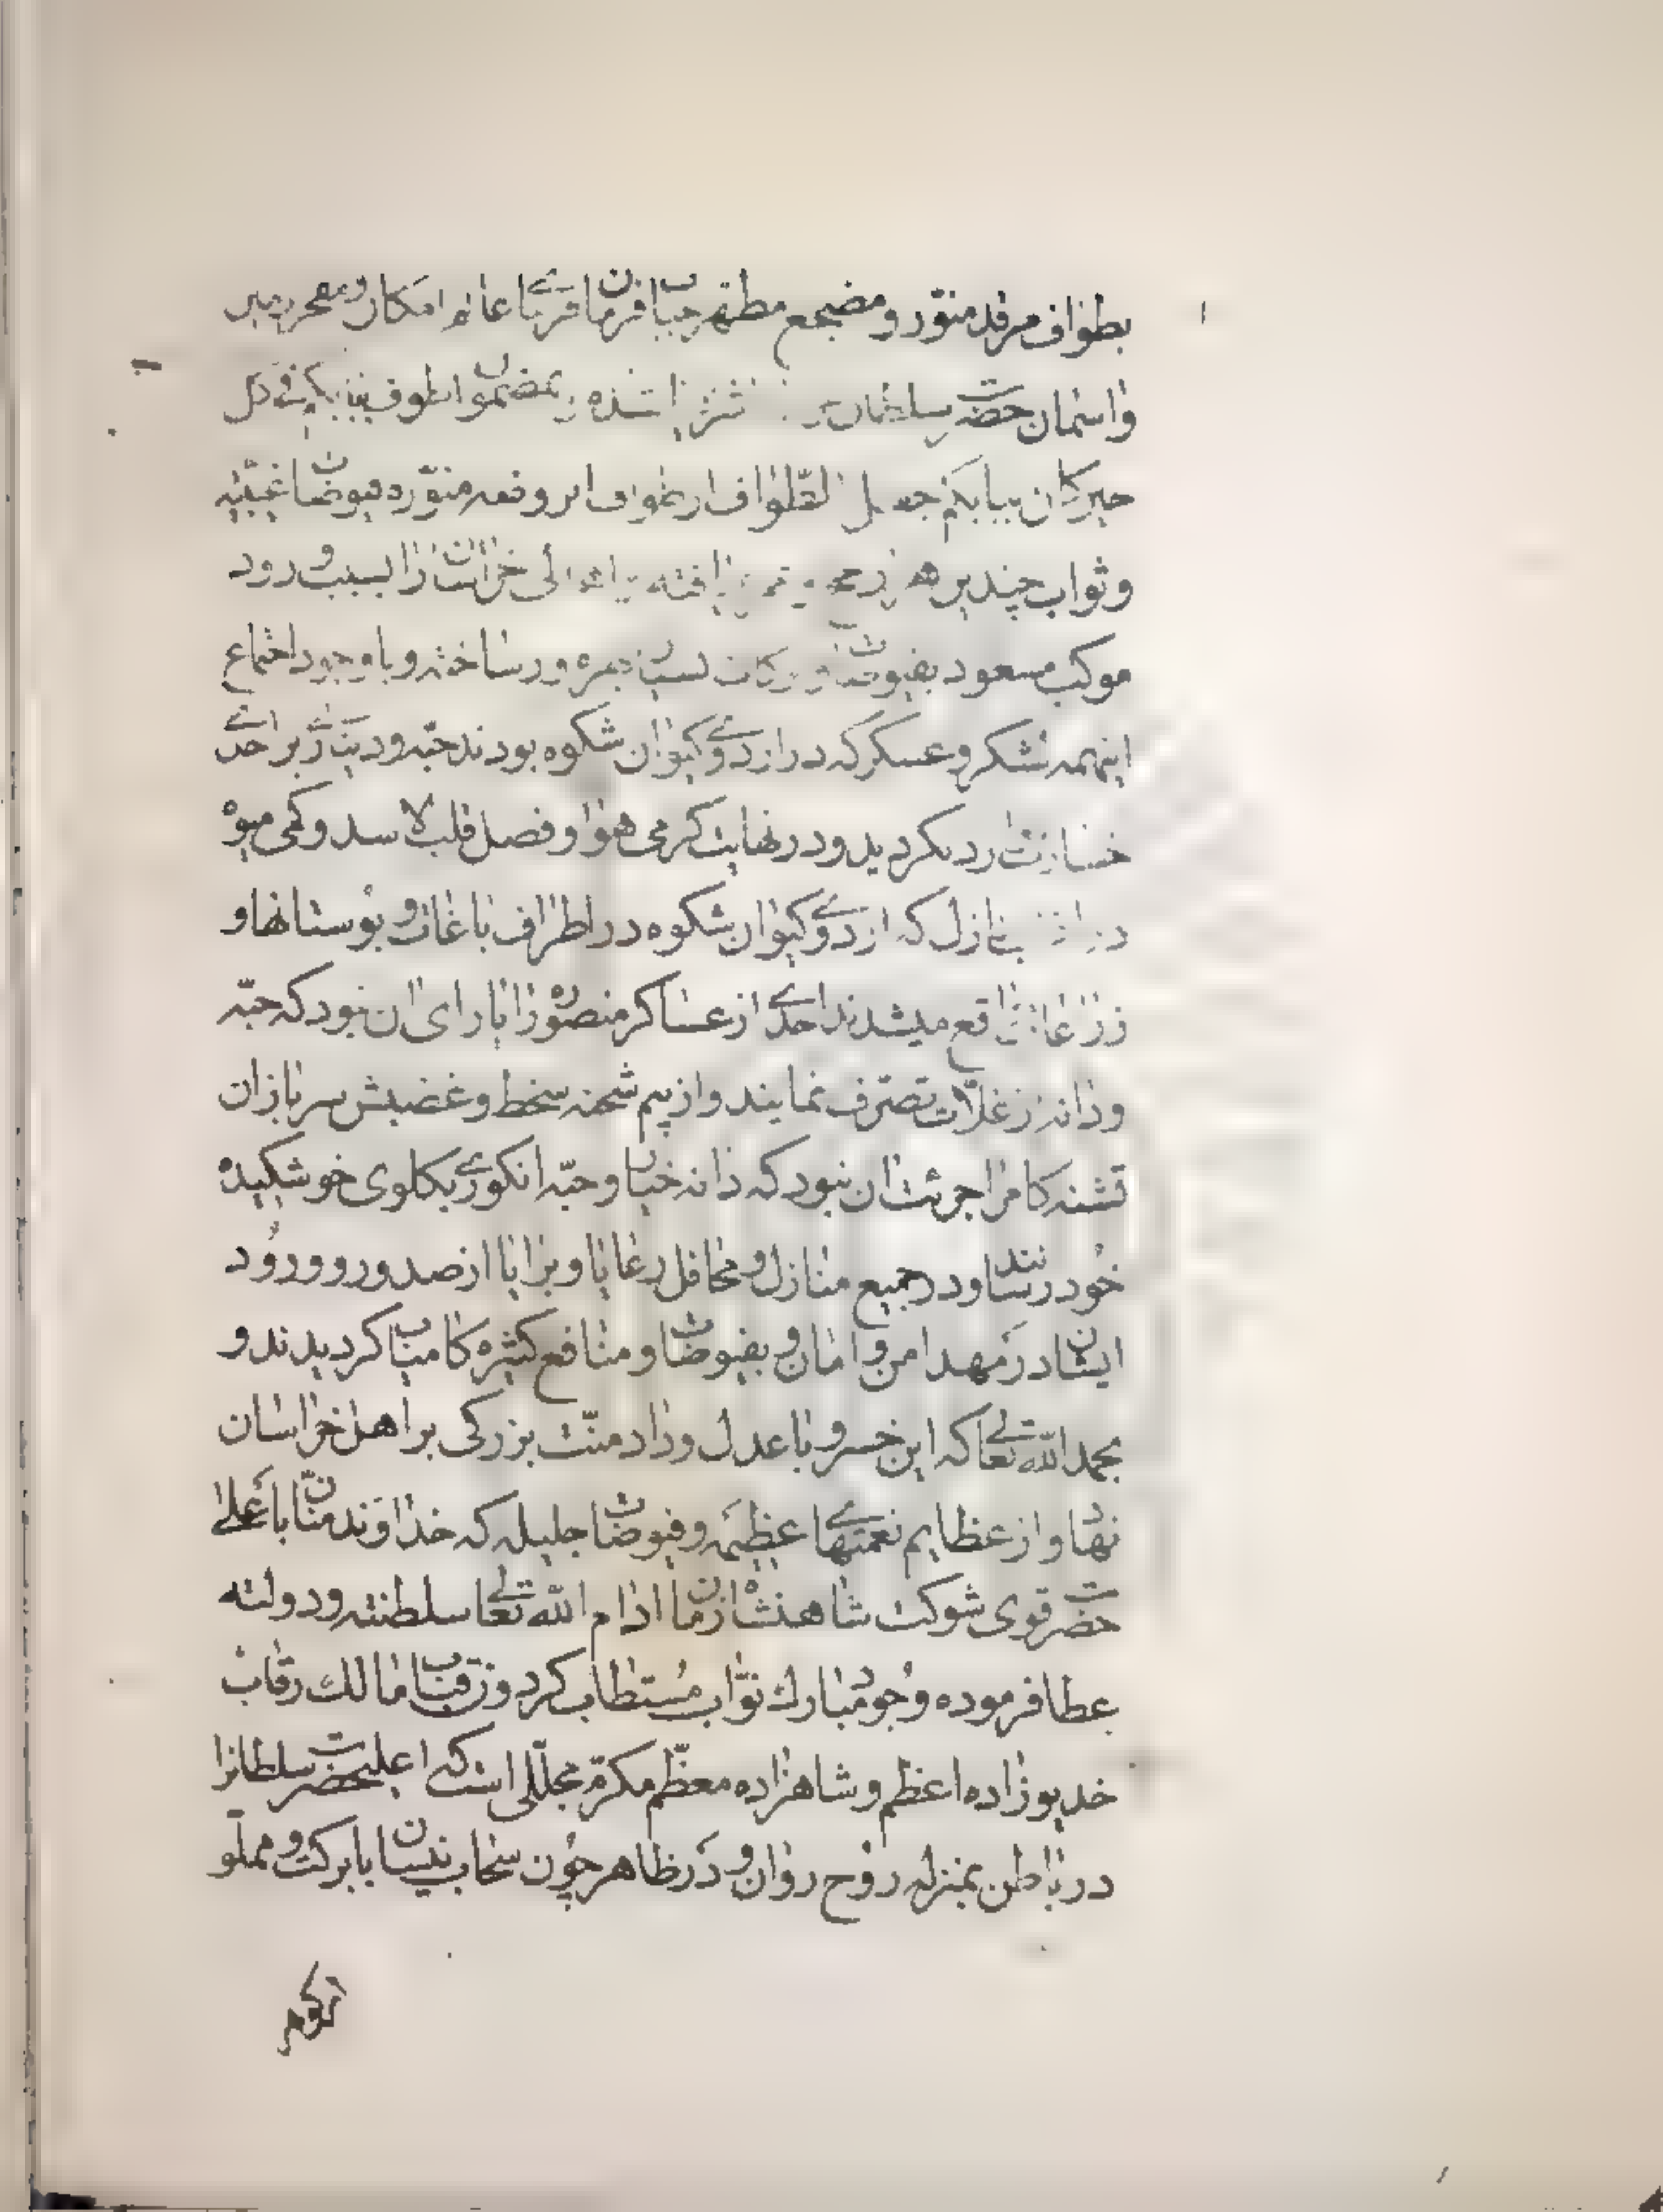 بطواف مرقد منوّر و مضجع مطهر جناب فرمان فرمای عالم امکان و
و اسمان حضرت سلطان شده بمضمون
الطواف از طواف ان روضه منوّره فیوضات غیبیّه
و ثواب چندین یافته اهالی خراسان را بسبب ورود
موکب مسعود بفیوضات و برکات بهره ور ساخته و با وجود اجتماع
اینهمه لشکر و عسکر که در اردوی کیوان شکوه بودند حبّه و دیناری بر احدی
خسارت وارد نکردید و در نهایت کرمی هوا و فصل قلب الاسد و کمی میوه
منازل که اردوی کیوان شکوه در اطراف باغات و بوستانها و
زراعات واقع میشدند احدی از عساکر منصوره را یارای ان نبود که حبّه
و دانه از غلّات تصرّف نمایند و از بیم شحنه سخط و غضبش سربازان
تشنه کام را جرئت ان نبود که دانه خیار و حبّه انکوری بکلوی خوشکیده
خود رسانند و در جمیع منازل و محافل رعایا و برایا از صدور و ورود
ایشان در مهد امن و امان و بفیوضات و منافع کثیره کامیاب کردیدند و
بحمد الله تعالی که این خسرو با عدل و داد منّت بزرکی بر اهل خراسان
نهاد و از عظایم نعمتهای عظیمه و فیوضات جلیله که خداوند منّان باعلی
حضرت قوی شوکت شاهنشاه زمان ادام الله تعالی سلطنته و دولته
عطا فرموده وجود مبارک نوّاب مستطاب کردون قباب مالک رقاب
خدیوزاده اعظم و شاهزاده معظّم مکرّم مجلّلی است که اعلیحضرت سلطانرا
در باطن بمنزله روح روان و در ظاهر چون سحاب نیسان با برکت و مملو